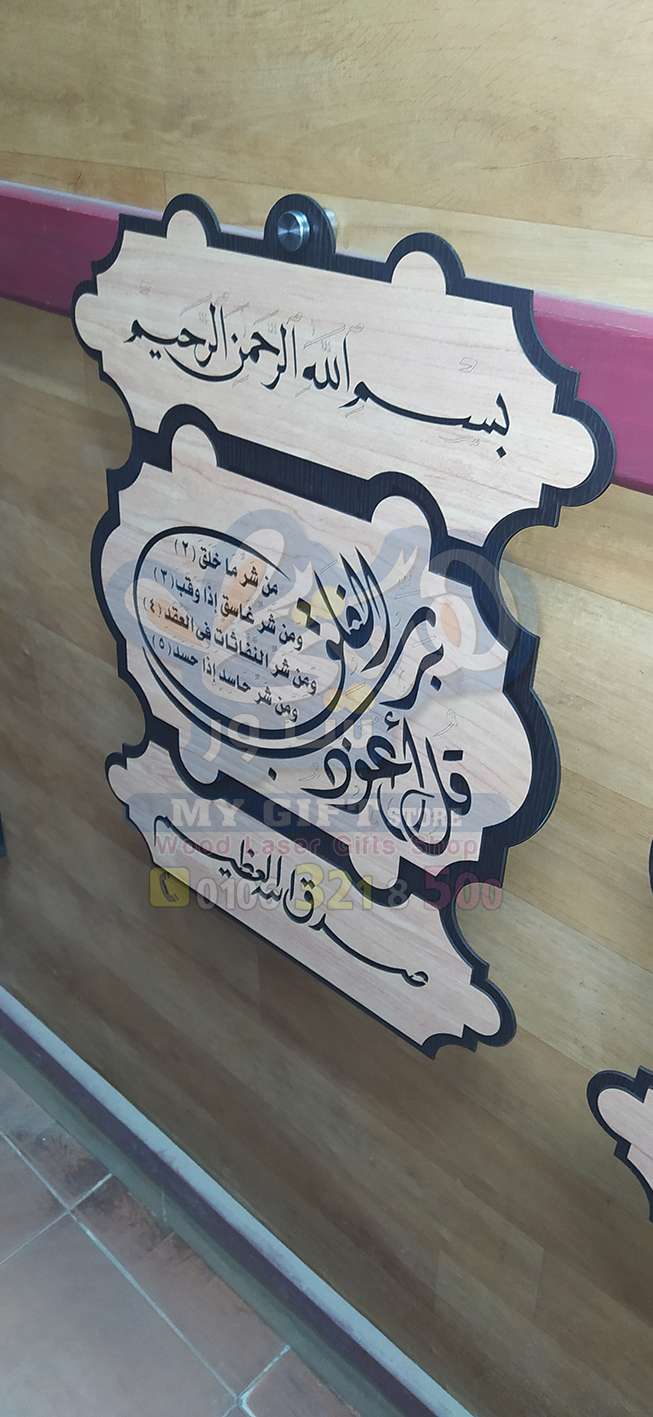 بِسْمِ اللَّهِ الرَّحْمَنِ الرَّحِيمِ
قل أعوذ برب الفلق
من شر ما خلق (٢)
ومن شر غاسق إذا وقب (٣)
ومن شر النفاثات فى العقد (٤)
ومن شر حاسد إذا حسد (٥)
صدق الله العظيم
MY GIFT STORE
Wood Laser Gifts Shop